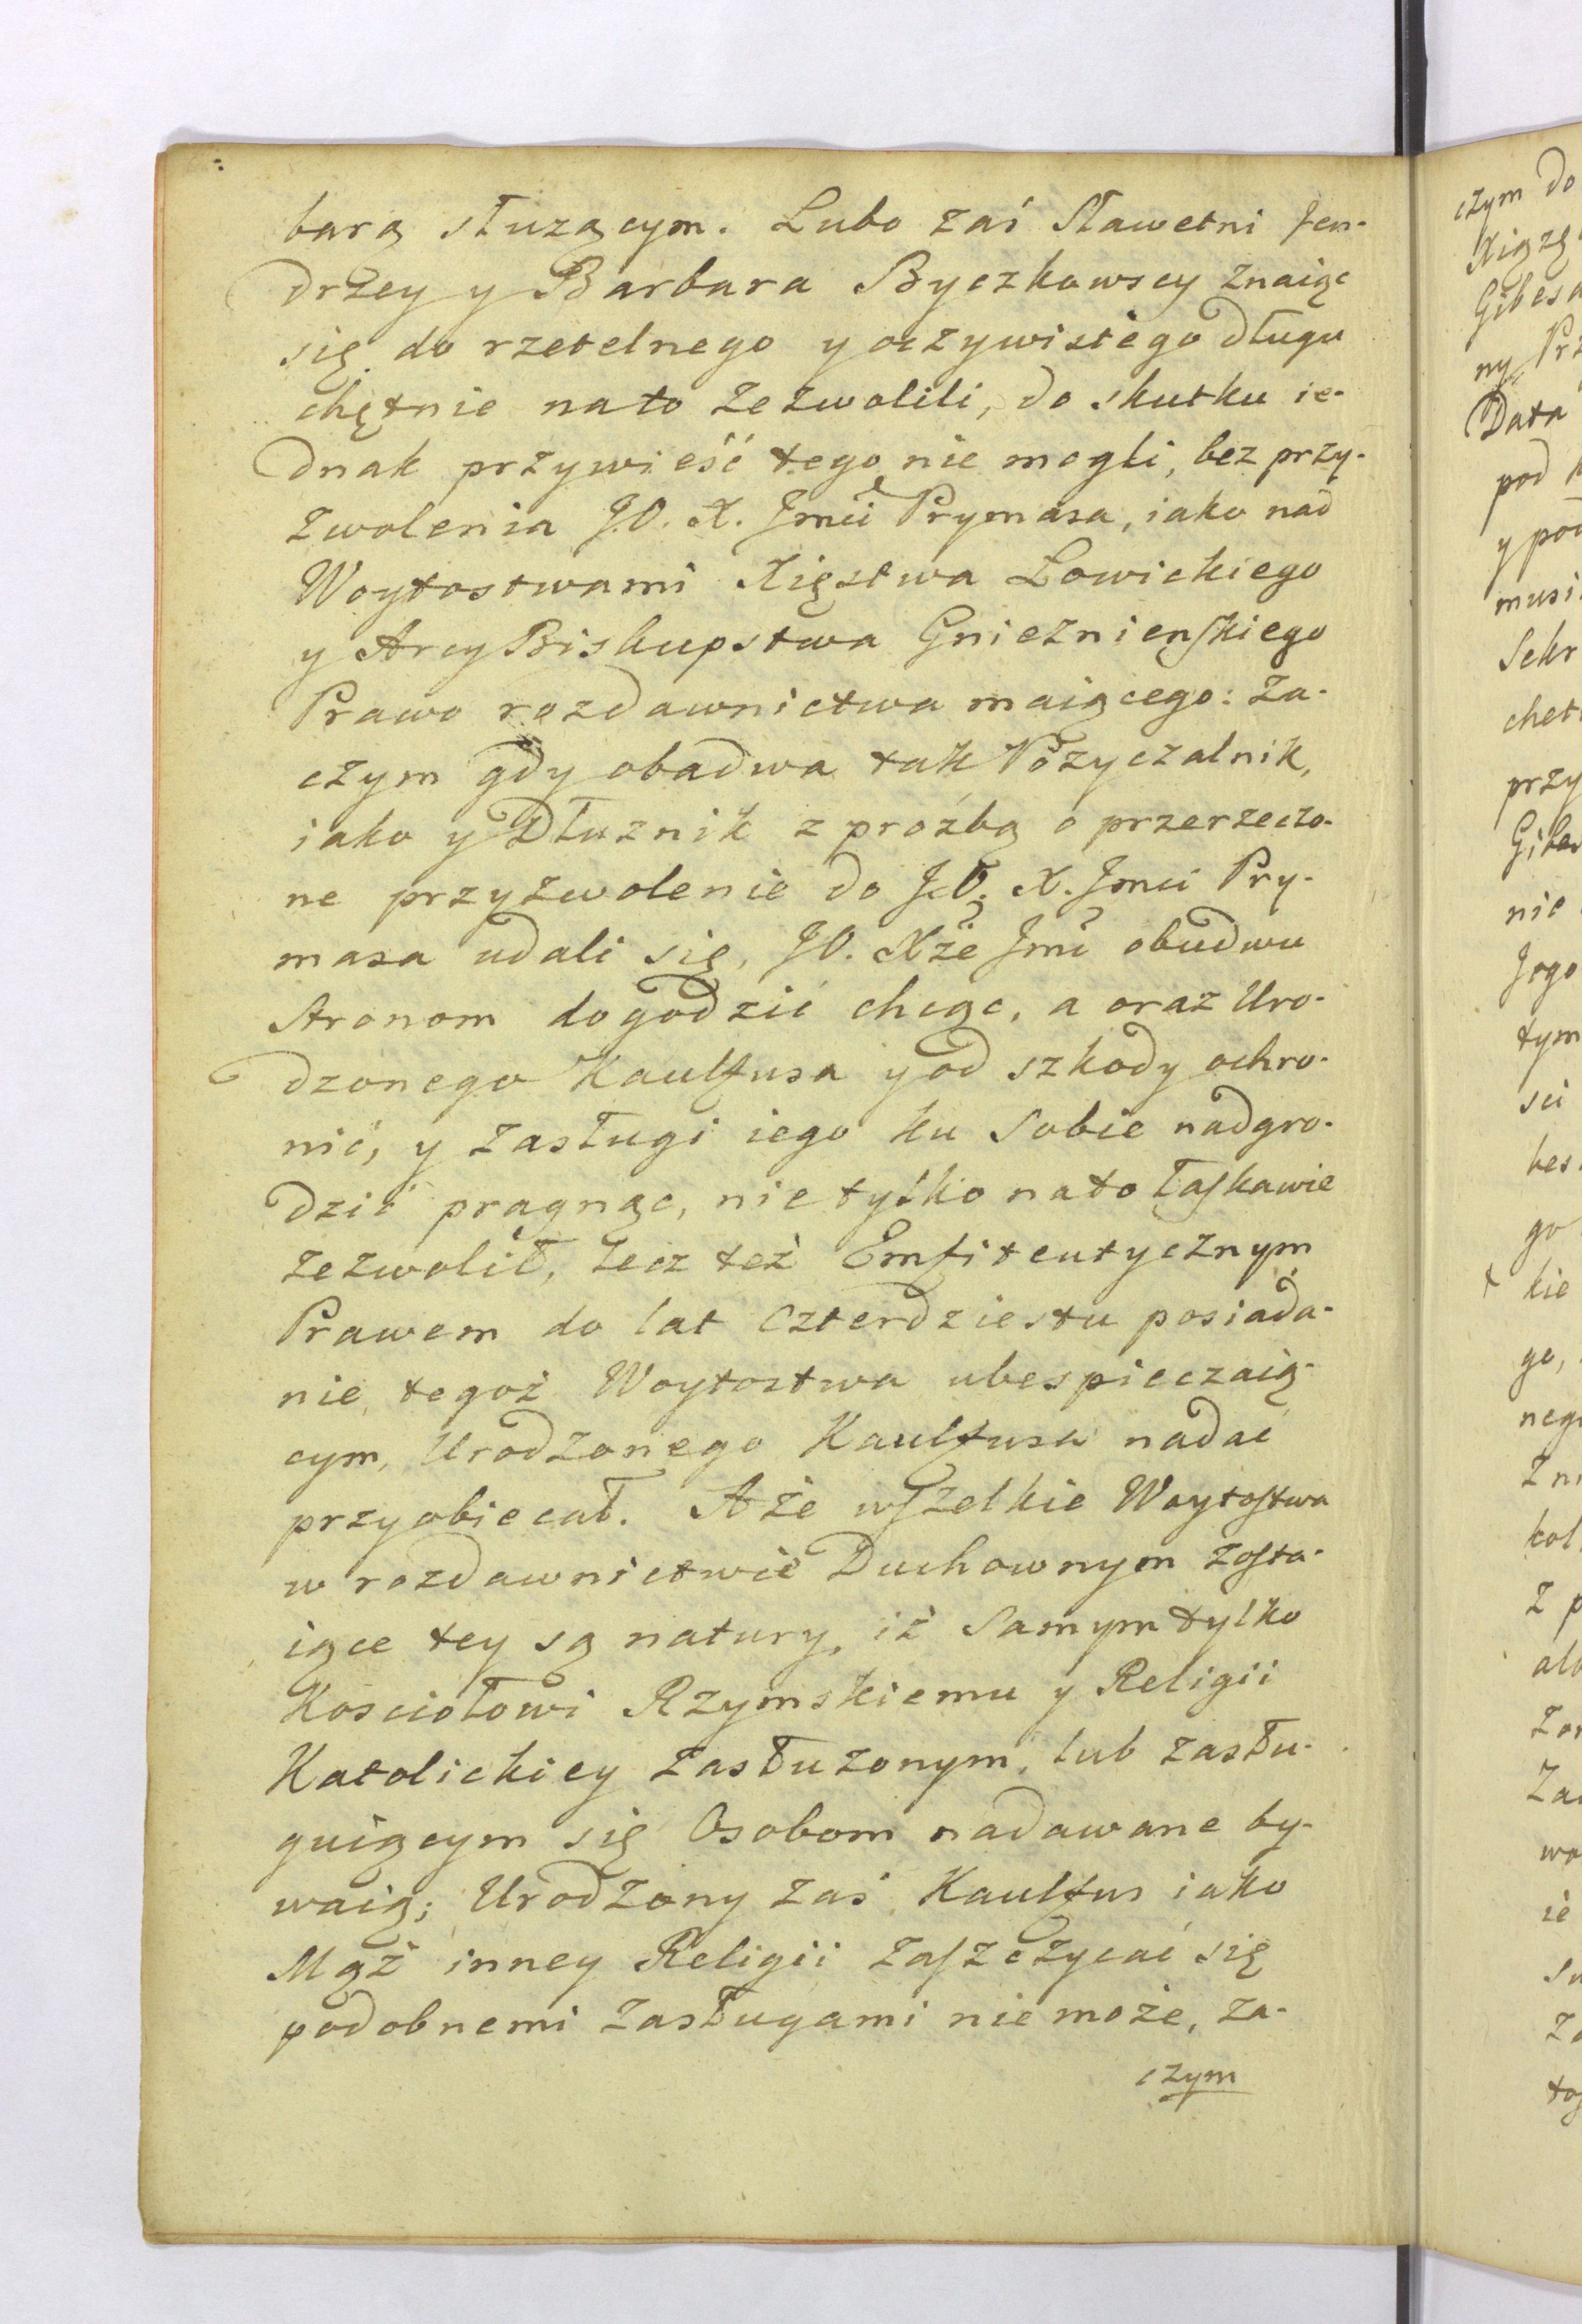 barą służącym. Lubo zaś Sławetni Jen-
drzey y Barbara Byczkowscy znaiąc
się do rzetelnego y oczywistego długu
chętnie na to zezwolili, do skutku ie-
dnak przywieść tego nie mogli, bez przy-
zwolenia J.O. X. Jmći Prymasa, iako nad
Woytostwami Xięstwa Łowickiego
y ArcyBiskupstwa Gnieznienskiego
Prawo rozdawnictwa maiącego: Za-
czym gdy obadwa tak Pożyczalnik,
iako y Dłuznik z proźbą o przerzeczo-
ne przyzwolenie do J.O. X. Jmci Pry-
masa udali się, JO. Xże Jmć obudwu
Stronom dogodzić chcąc, a oraz Uro-
dzonego Kaulfusa y od szkody ochro-
nić, y zasługi iego ku Sobie nadgro-
dzić pragnąc, nie tylko na to łaskawie
zezwolił, lecz też Emfiteutycznym
Prawem do lat Czterdziestu posiada-
nie tegoż Woytostwa ubespieczaią-
cym, Urodzonego Kaulfusa nadać
przyobiecał. A że wszelkie Woytostwa
w rozdawnictwie Duchownym zosta-
iące tey są natury, iż Samym tylko
Kosciołowi Rzymskiemu y Religii
Katolickiey zasłużonym, lub zasłu-
guiącym się Osobom nadawane by-
waią; Urodzony zaś Kaulfus iako
Mąż inney Religii zaszczycać się
podobnemi zasługami nie może, za-
czym
czym do
Xiązę
Gibesa
ny Prz
Data
pod
y pod
musi
Sekr
chet
przy
Gibes
nie
Jego
tym
sci
bes
go
kie
go,
nego
Zni
kol
z p
alb
Zon
Za
wa
ie
Su
Za